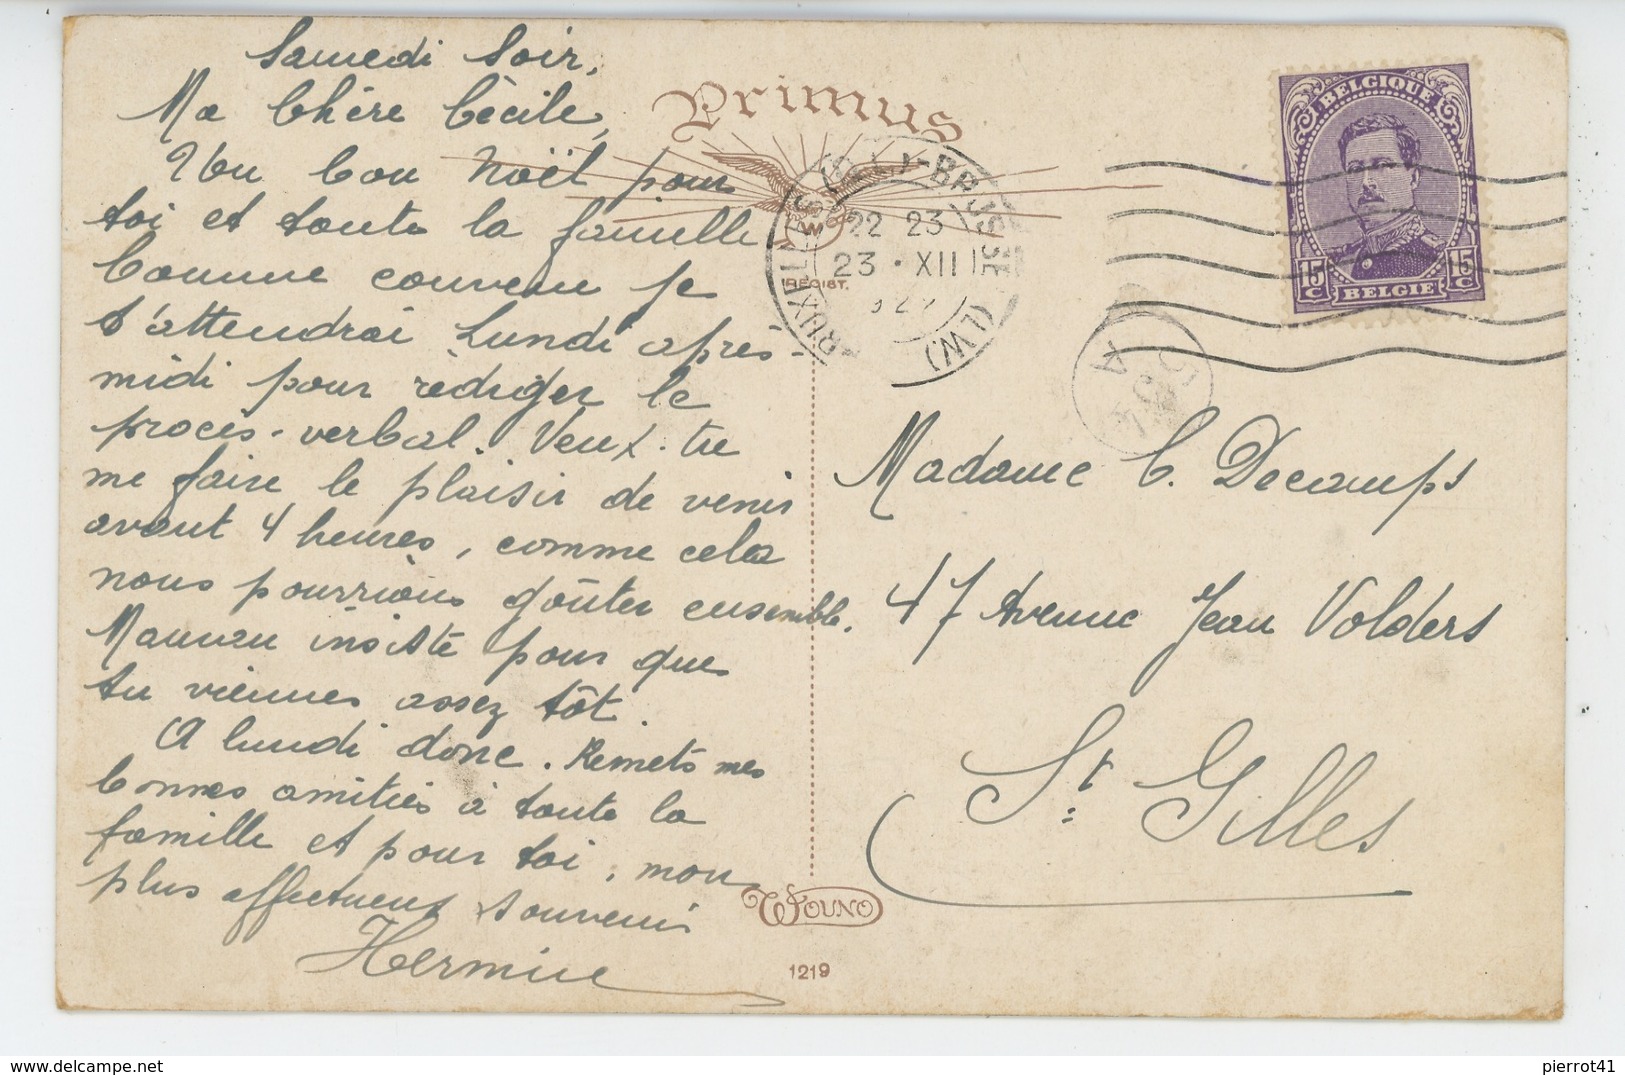 Samedi Soir,
Ma Chère Cécile,
Un bon Noël pour
toi et toute la famille
Comme convenu je
t'attendrai Lundi après-
midi pour rédiger le
procès-verbal. Veux-tu
me faire le plaisir de venir
avant 4 heures, comme cela
nous pourrions goûter ensemble.
Maman insiste pour que
tu viennes assez tôt.
A lundi donc. Remets mes
bonnes amitiés à toute la
famille et pour toi, mon
plus affectueux souvenir
Hermine
Primus
W
REGIST.
22 23
23 · XII
BELGIQUE
15 C
15 C
BELGIE
A
Madame C. Decamps
47 Avenue Jean Volders
St Gilles
WOUNO
1219
pierrot41